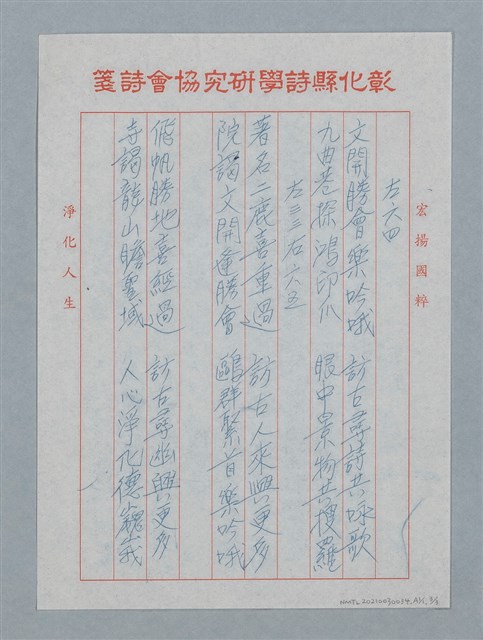 彰化縣詩學研究協會詩箋
宏揚國粹
左六四
文開勝會樂吟哦 訪古尋詩共詠歌
九曲巷探鴻印爪 眼中景物共搜羅
左三三右六五
著名二鹿喜重過 訪古人來興更多
院謁文開逢勝會 鷗群繫首樂吟哦
偕帆勝地喜經過 訪古尋幽興更多
寺謁龍山瞻聖域 人心淨化德巍峨
淨化人生
HMTL20210030034.A31, 3/3